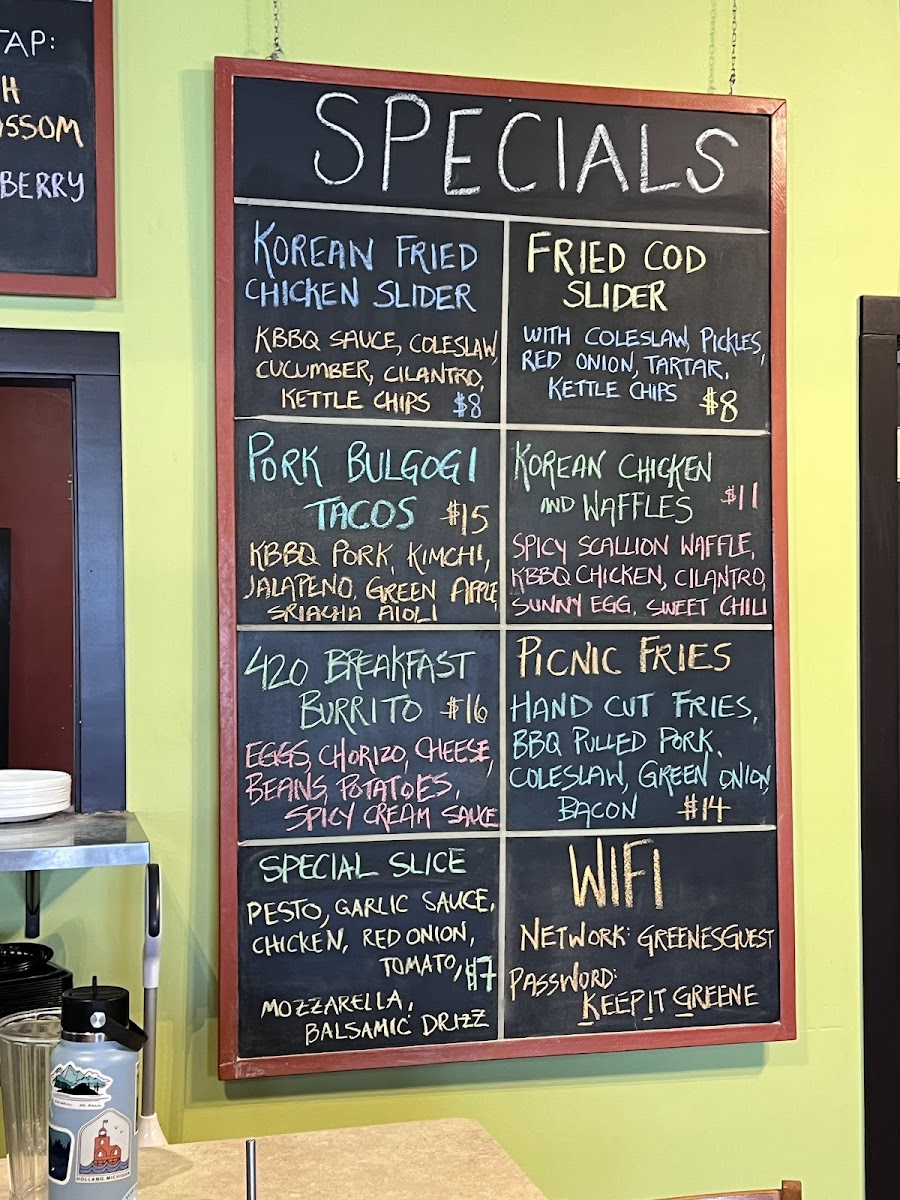 TAP:
H
OSSOM
BERRY
SPECIALS
KOREAN FRIED
CHICKEN SLIDER
KBBQ SAUCE, COLESLAW,
CUCUMBER, CILANTRO,
KETTLE CHIPS $8
FRIED COD
SLIDER
WITH COLESLAW, PICKLES,
RED ONION, TARTAR,
KETTLE CHIPS $8
PORK BULGOGI
TACOS $15
KBBQ PORK, KIMCHI,
JALAPENO, GREEN APPLE
SRIACHA AIOLI
KOREAN CHICKEN
AND WAFFLES $11
SPICY SCALLION WAFFLE,
KBBQ CHICKEN, CILANTRO,
SUNNY EGG, SWEET CHILI
420 BREAKFAST
BURRITO $16
EGGS, CHORIZO, CHEESE,
BEANS, POTATOES,
SPICY CREAM SAUCE
PICNIC FRIES
HAND CUT FRIES,
BBQ PULLED PORK,
COLESLAW, GREEN ONION,
BACON $14
SPECIAL SLICE
PESTO, GARLIC SAUCE,
CHICKEN, RED ONION,
TOMATO, $7
MOZZARELLA,
BALSAMIC DRIZZ
WIFI
NETWORK: GREENESGUEST
PASSWORD:
KEEP IT GREENE
HOLLAND, MICHIGAN